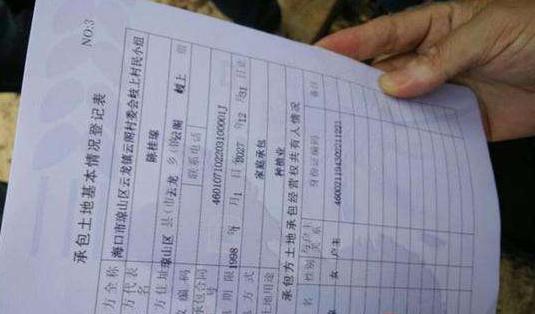 NO:3
承包土地基本情况登记表
方全称 海口市琼山区云龙镇云阁村委会岐上村民小组
方代表名 陈桂琼
方住址 琼山区 县(市) 云龙 乡(镇) 云阁 岐上 组
编码 联系电话
承包合同号 460107102203100001J
期限 1998年1月1日 2027年12月31日止
方式 家庭承包
土地用途 种植业
承包方土地承包经营权共有人情况
名 性别 与户主关系 身份证编码 备注
女 户主